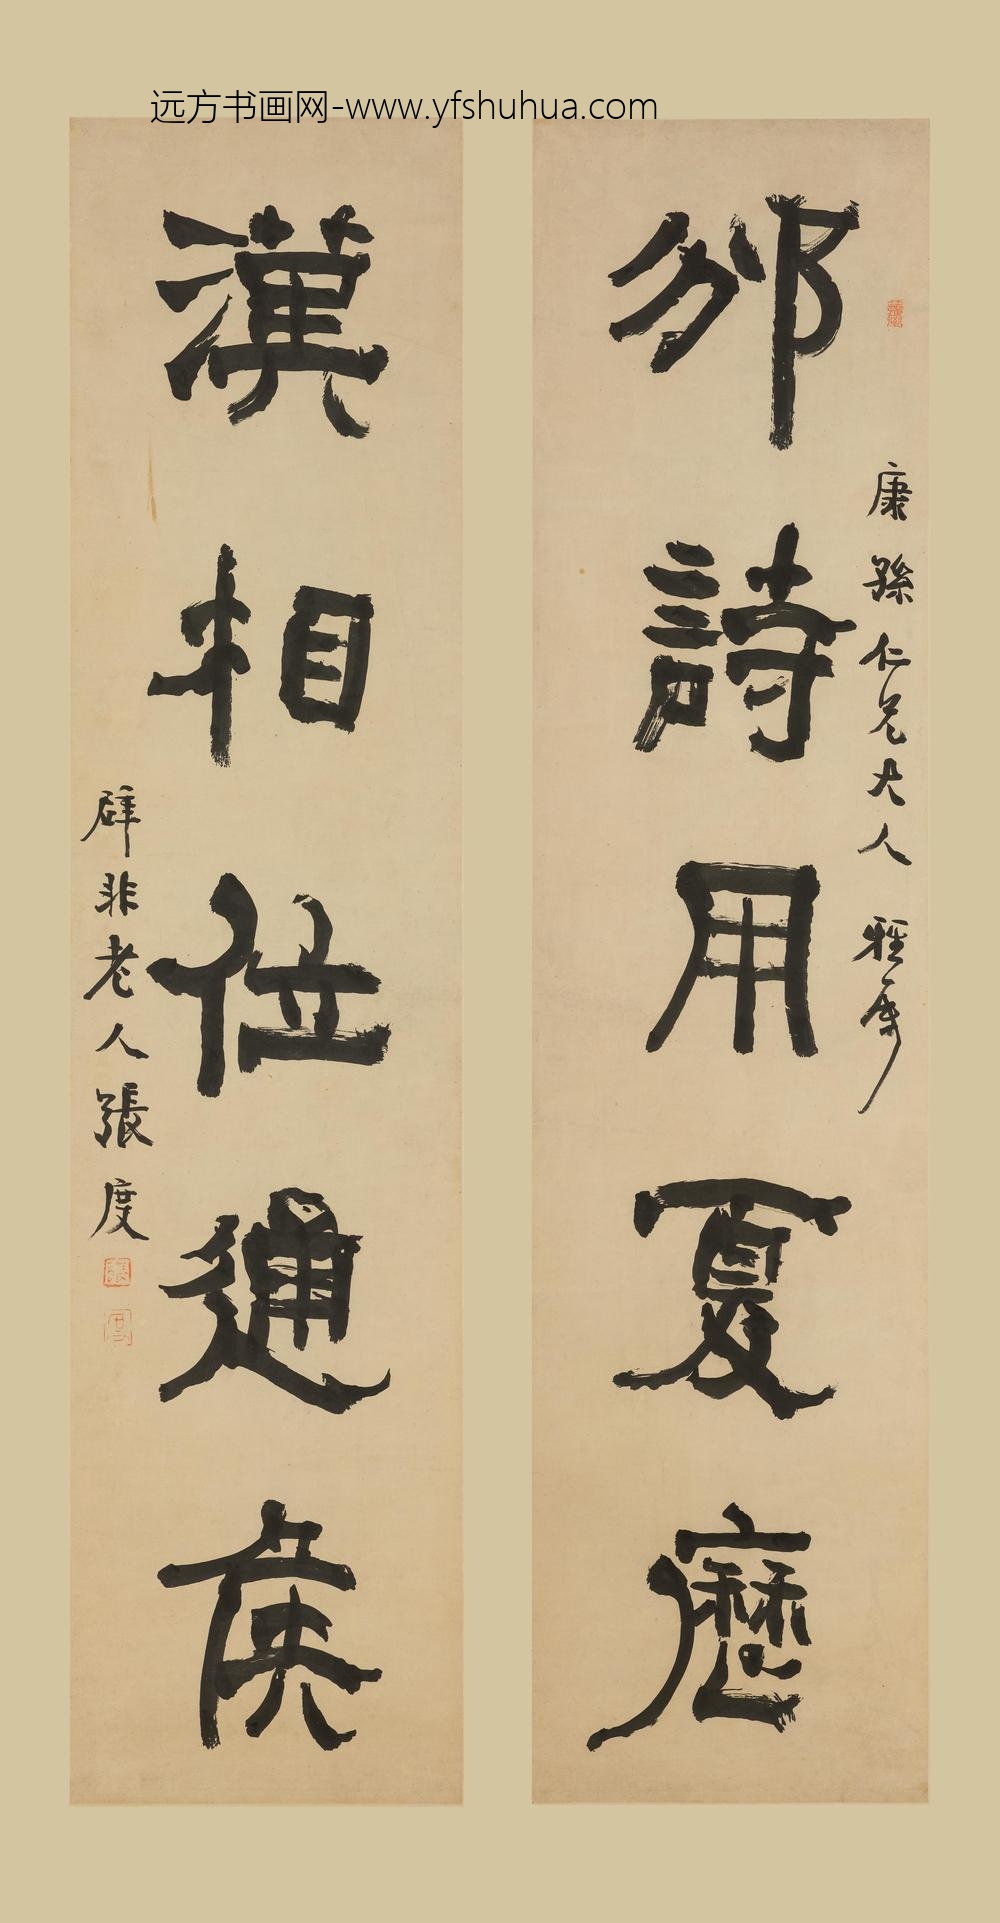 远方书画网-www.yfshuhua.com
邠詩用夏曆
康孫仁兄大人雅屬
漢相位通侯
辟非老人張度